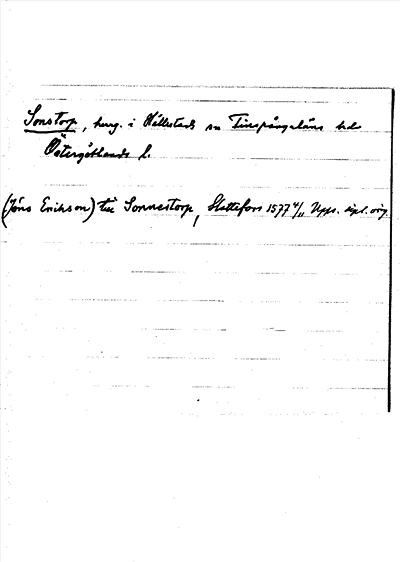 Sonstorp, herrg. i Hällestads sn Finspångaläns hd
Östergötlands l.
(Jöns Erikson) till Sonnestorp, Slottefors 1577 4/11 Upps. dipl. orig